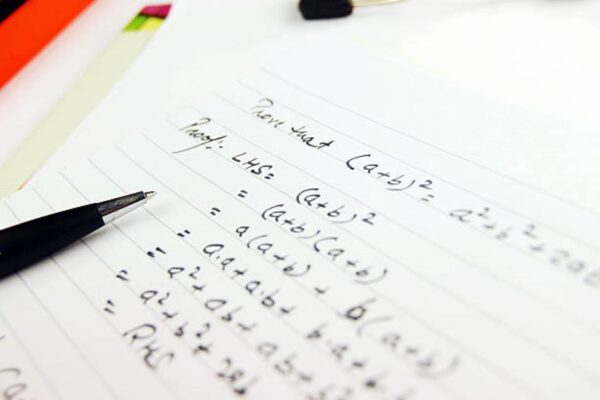 Prove that (a+b)² = a²+b²+2ab
Proof: LHS = (a+b)²
= (a+b)(a+b)
= a(a+b) + b(a+b)
= a.a + a.b + b.a +
= a² + ab + ab + b²
= a² + b² + 2ab
= RHS